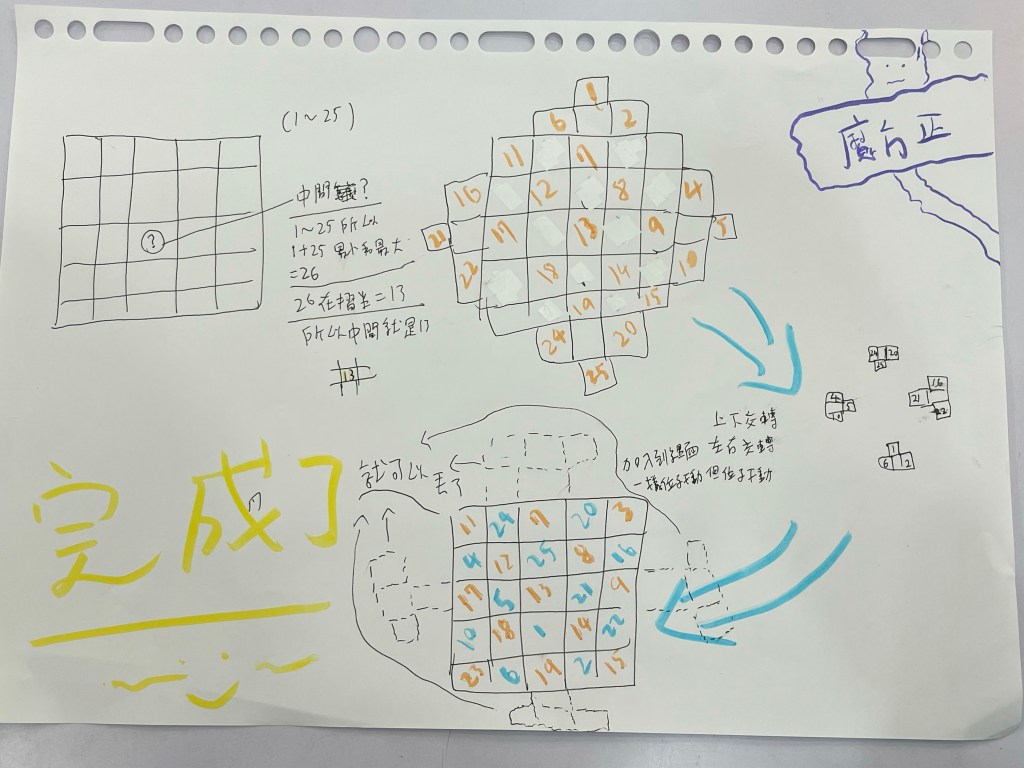 (1~25)
?
中間竟?
1~25所以
1+25 最小和最大
=26
26在摺半=13
所以中間就是13
13
魔方正
1
6 2
11 7
16 12 8 4
21 17 13 9 5
22 18 14 10
19 15
24 20
25
24 20
25
4 5
10
16
21
22
1
6 2
上下交轉
加入到裡面 左右交轉
一樣位子移動 但位子不動
就可以丟了
11 24 7 20 3
4 12 25 8 16
17 5 13 21 9
10 18 1 14 22
23 6 19 2 15
完成了